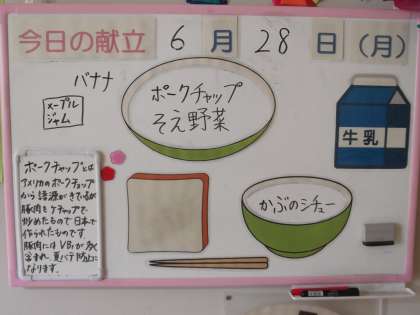 今日の献立 6月28日(月)
バナナ
メープル
ジャム
ポークチャップ
そえ野菜
牛乳
かぶのシチュー
ポークチャップとは
アメリカのポークチョップ
から語源がきているが
豚肉をケチャップで
炒めたもので日本で
作られたものです
豚肉にはVB₁が多く
含まれ、夏バテ防止に
なります。